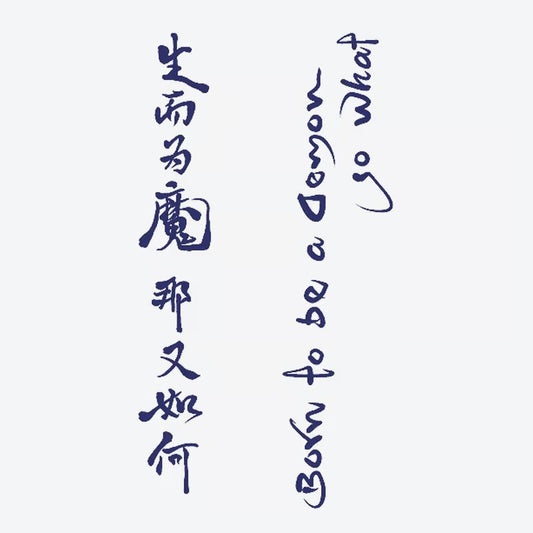 生而为魔 那又如何
Born to be a Demon
so what